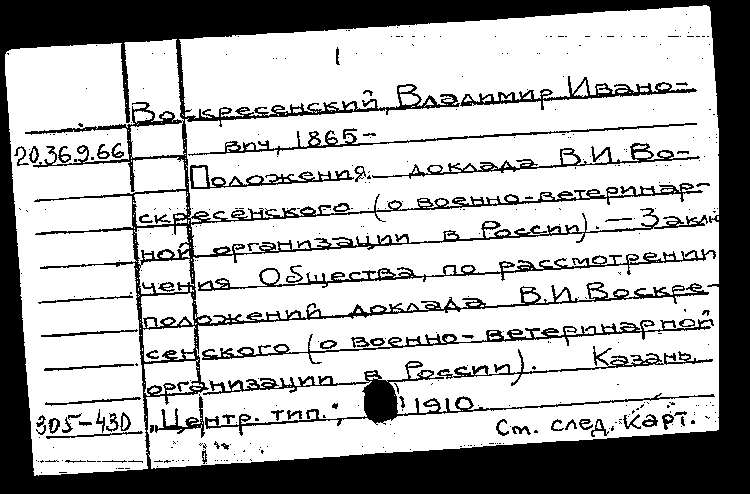 1
Воскресенский, Владимир Ивано-
20.36.9.66 вич, 1865-
Положения доклада В.И. Во-
скресенского (о военно-ветеринар-
ной организации в России). — Заклю
чения Общества, по рассмотрении
положений доклада В.И. Воскре-
сенского (о военно-ветеринарной
организации в России). Казань,
305-430 "Центр. тип.", 1910.
Ст. след. карт.